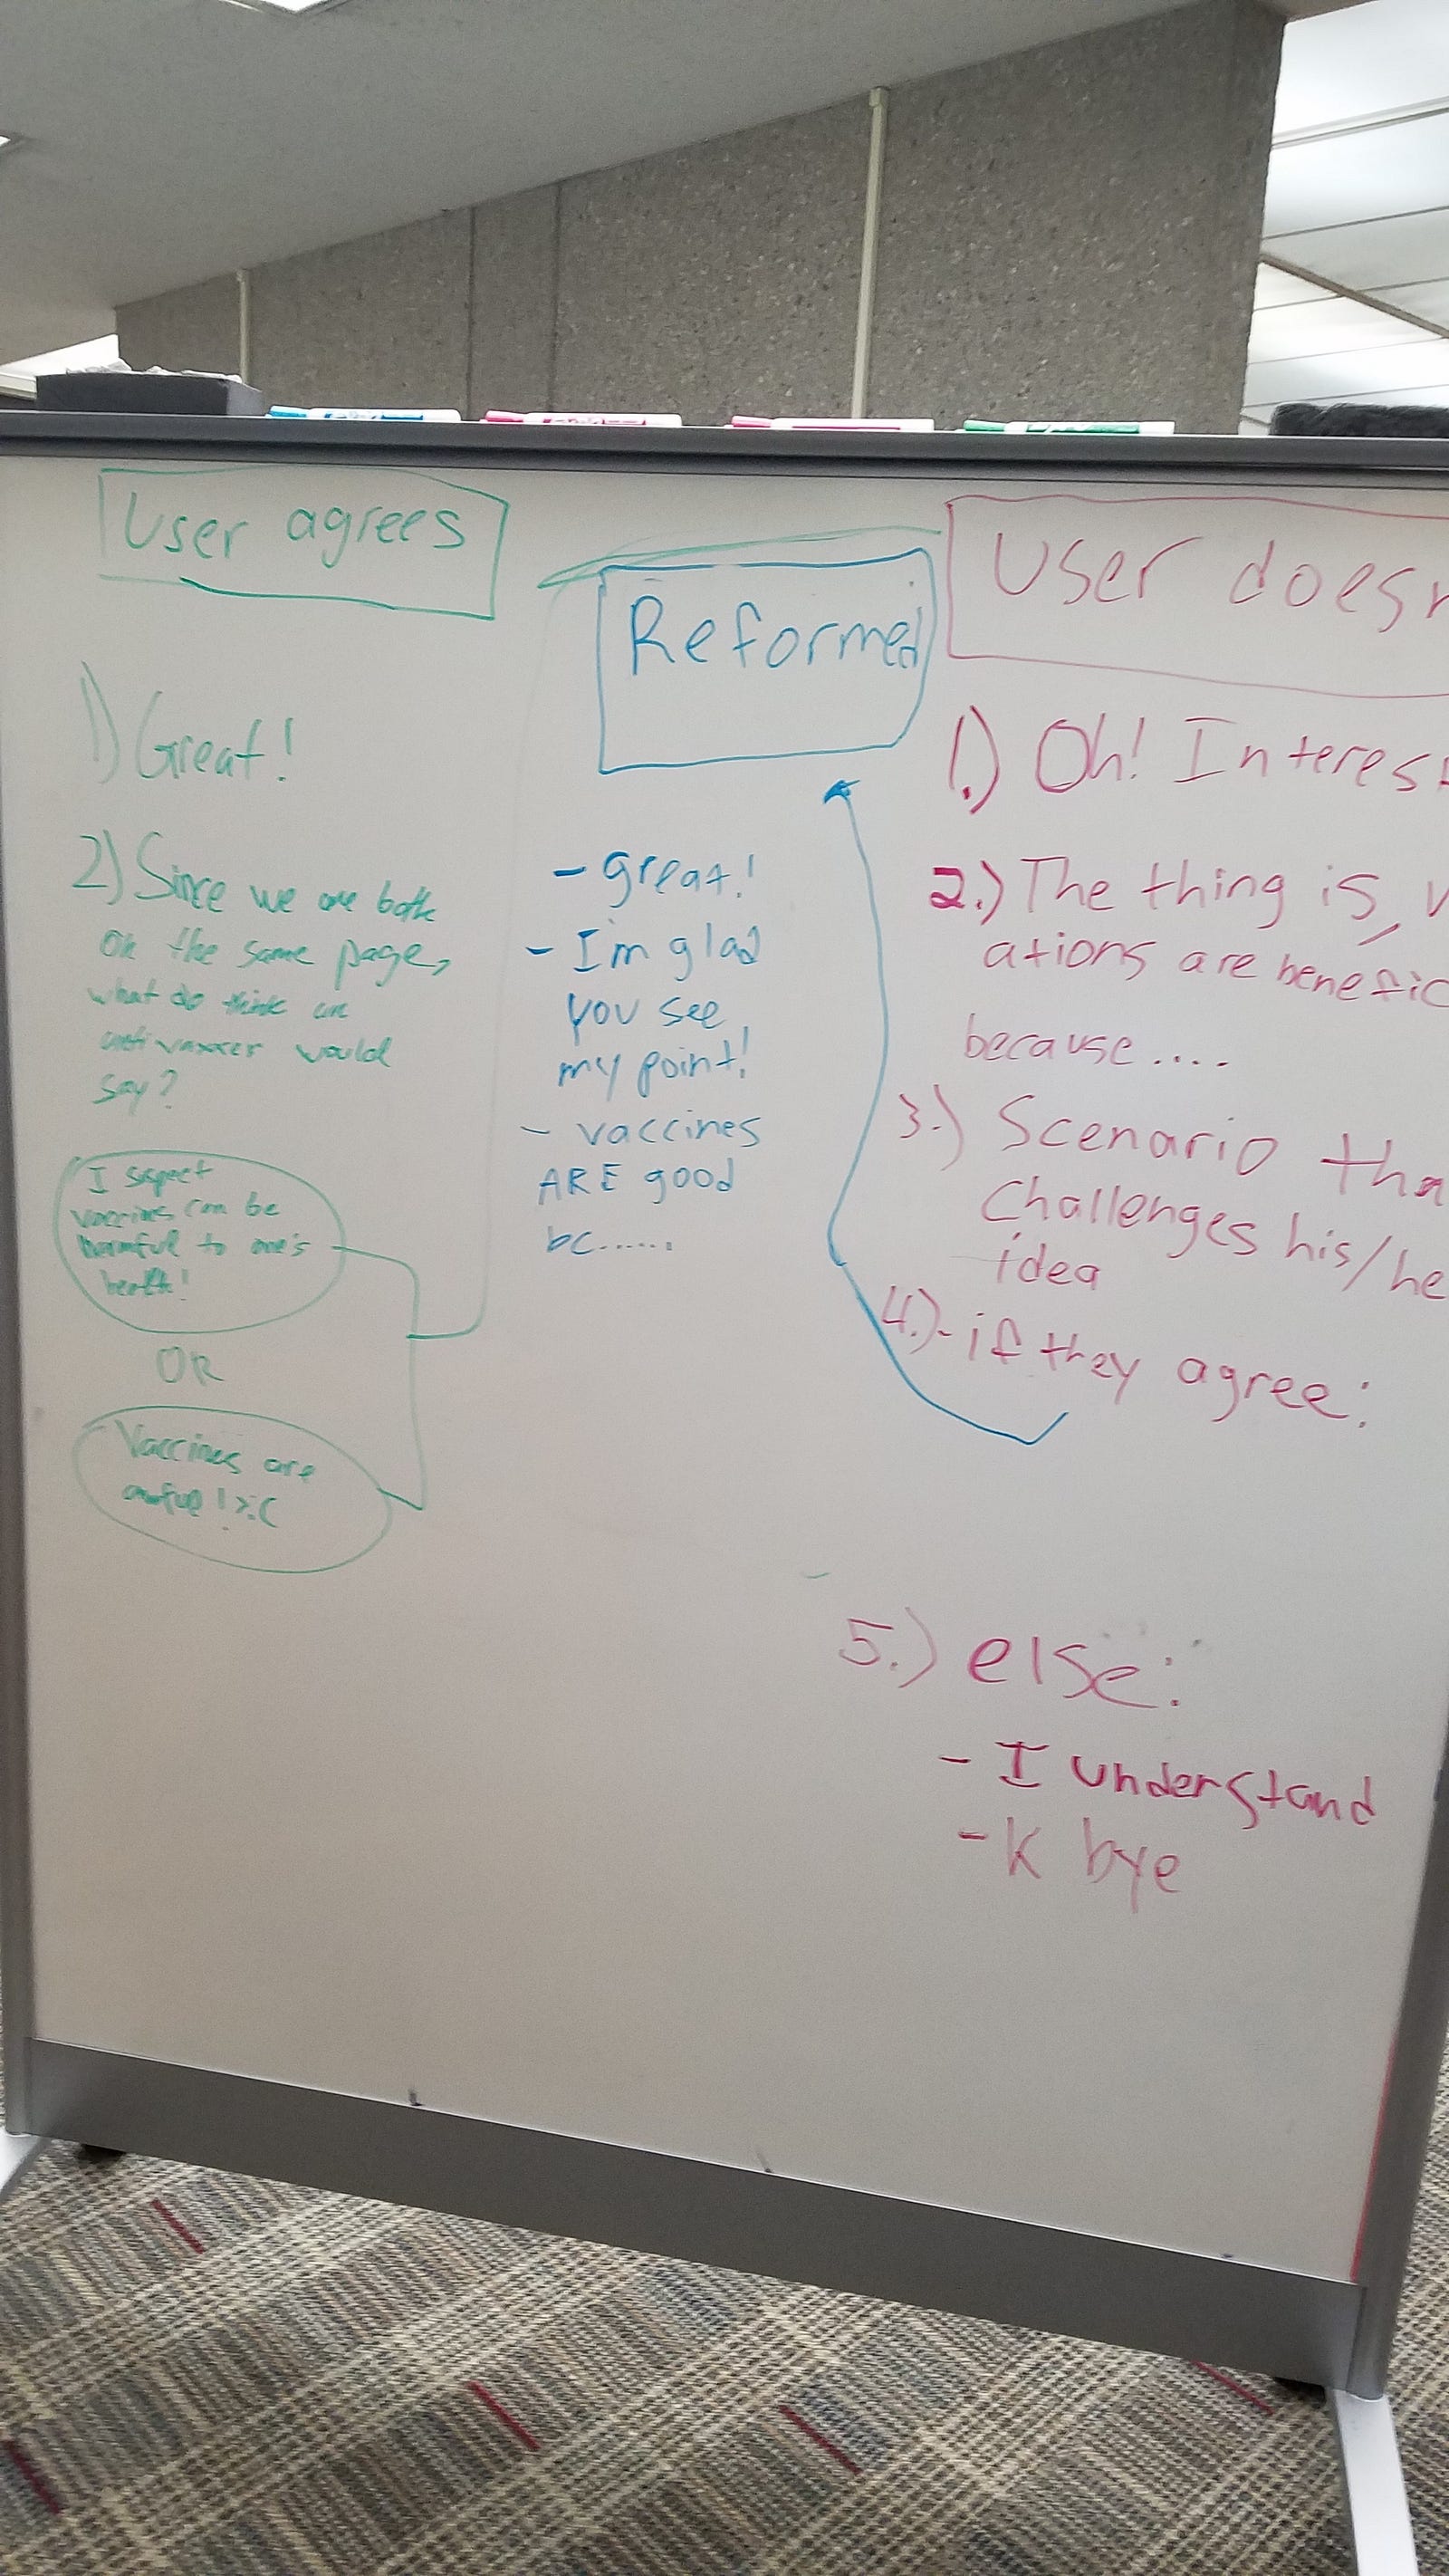 User agrees
1) Great!
2) Since we are both
on the same page,
what do think an
antivaxxer would
say?
I suspect
vaccines can be
harmful to one's
health!
OR
Vaccines are
awful! >:(
Reformed
- great!
- I'm glad
you see
my point!
- vaccines
ARE good
bc......
User doesn
1.) Oh! Interest
2.) The thing is, v
ations are benefic
because....
3.) Scenario tha
challenges his/he
idea
4.)- if they agree:
5.) else:
- I understand
- K bye